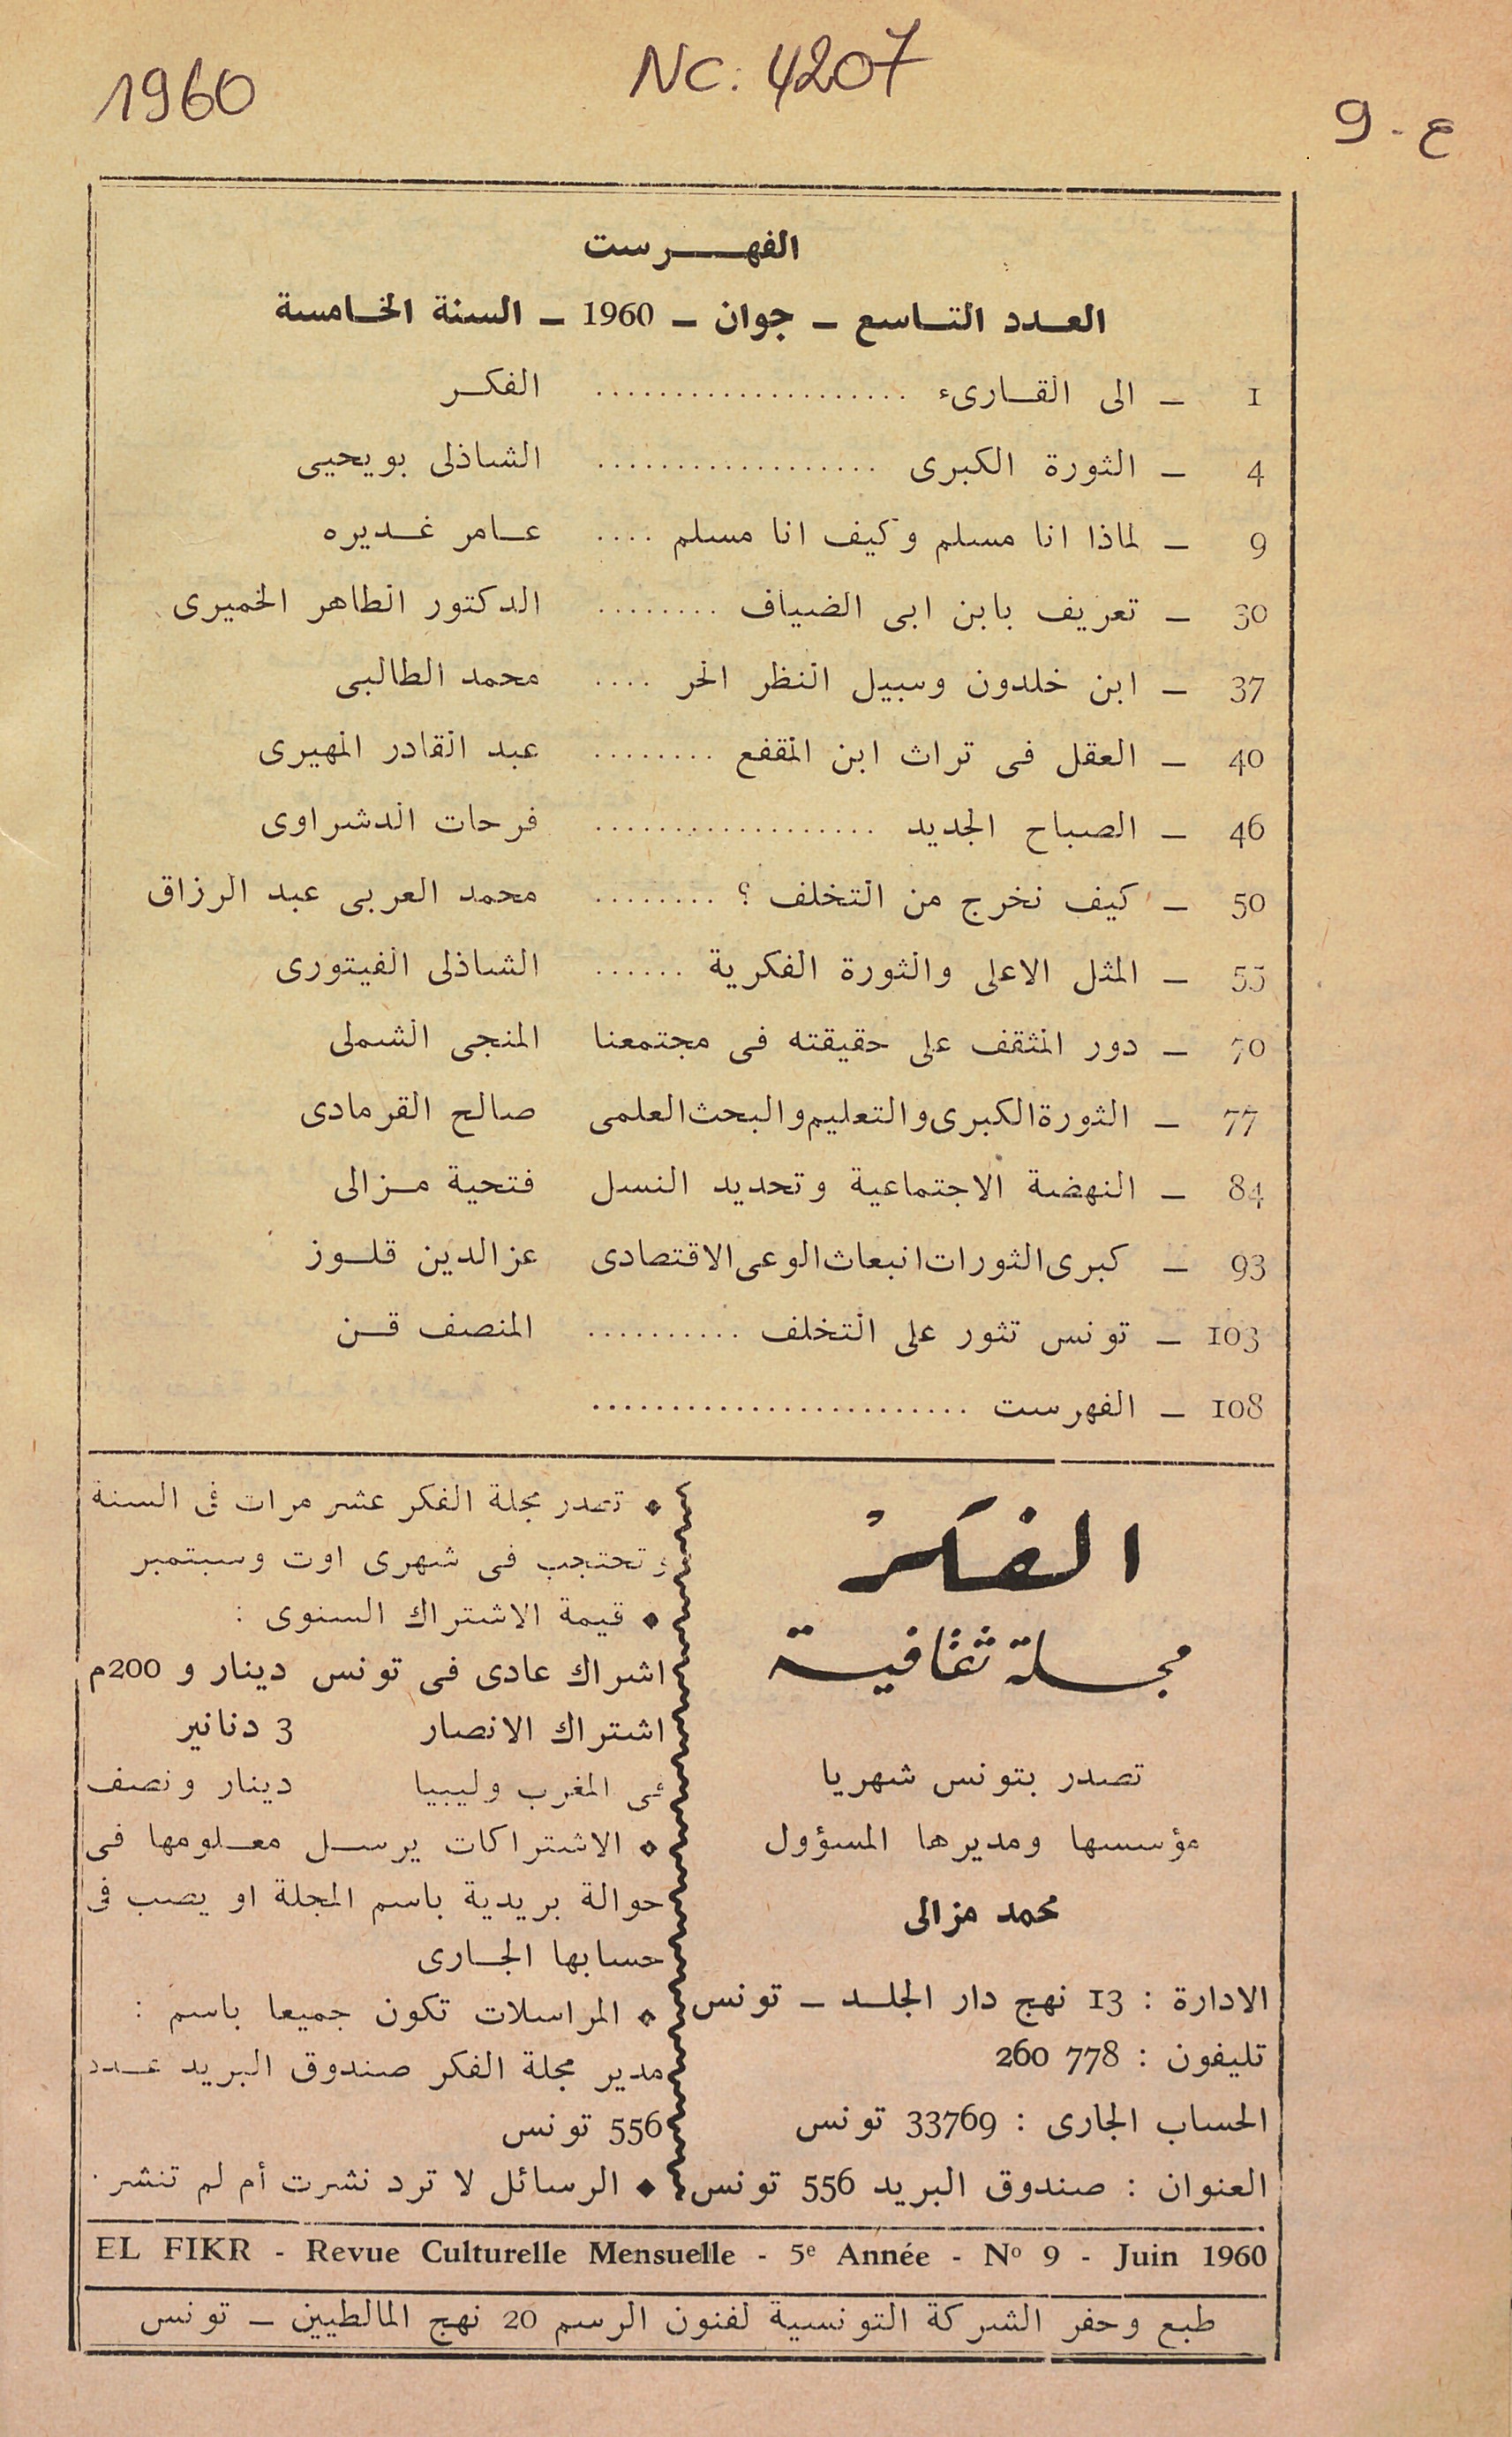 1960
NC: 4207
ع - 9
الفهرست
العدد التاسع – جوان – 1960 – السنة الخامسة
1 – الى القارىء .................... الفكر
4 – الثورة الكبرى .................. الشاذلى بويحيى
9 – لماذا انا مسلم وكيف انا مسلم .... عامر غديره
30 – تعريف بابن ابى الضياف ........ الدكتور الطاهر الخميرى
37 – ابن خلدون وسبيل النظر الحر .... محمد الطالبى
40 – العقل فى تراث ابن المقفع ........ عبد القادر المهيرى
46 – الصباح الجديد .................. فرحات الدشراوى
50 – كيف نخرج من التخلف ؟ ........ محمد العربى عبد الرزاق
55 – المثل الاعلى والثورة الفكرية ...... الشاذلى الفيتورى
70 – دور المثقف على حقيقته فى مجتمعنا المنجى الشملى
77 – الثورة الكبرى والتعليم والبحث العلمى صالح القرمادى
84 – النهضة الاجتماعية وتحديد النسل فتحية مزالى
93 – كبرى الثورات انبعاث الوعى الاقتصادى عز الدين قلوز
103 – تونس تثور على التخلف .......... المنصف قن
108 – الفهرست ........................
الفكر
مجلة ثقافية
تصدر بتونس شهريا
مؤسسها ومديرها المسؤول
محمد مزالى
الادارة : 13 نهج دار الجلد – تونس
تليفون : 778 260
الحساب الجارى : 33769 تونس
العنوان : صندوق البريد 556 تونس
◆ تصدر مجلة الفكر عشر مرات فى السنة
وتحتجب فى شهرى اوت وسبتمبر
◆ قيمة الاشتراك السنوى :
اشراك عادى فى تونس دينار و 200م
اشتراك الانصار 3 دنانير
فى المغرب وليبيا دينار ونصف
◆ الاشتراكات يرسل معلومها فى
حوالة بريدية باسم المجلة او يصب فى
حسابها الجارى
◆ المراسلات تكون جميعا باسم :
مدير مجلة الفكر صندوق البريد عدد
556 تونس
◆ الرسائل لا ترد نشرت أم لم تنشر .
EL FIKR - Revue Culturelle Mensuelle - 5e Année - No 9 - Juin 1960
طبع وحفر الشركة التونسية لفنون الرسم 20 نهج المالطيين – تونس